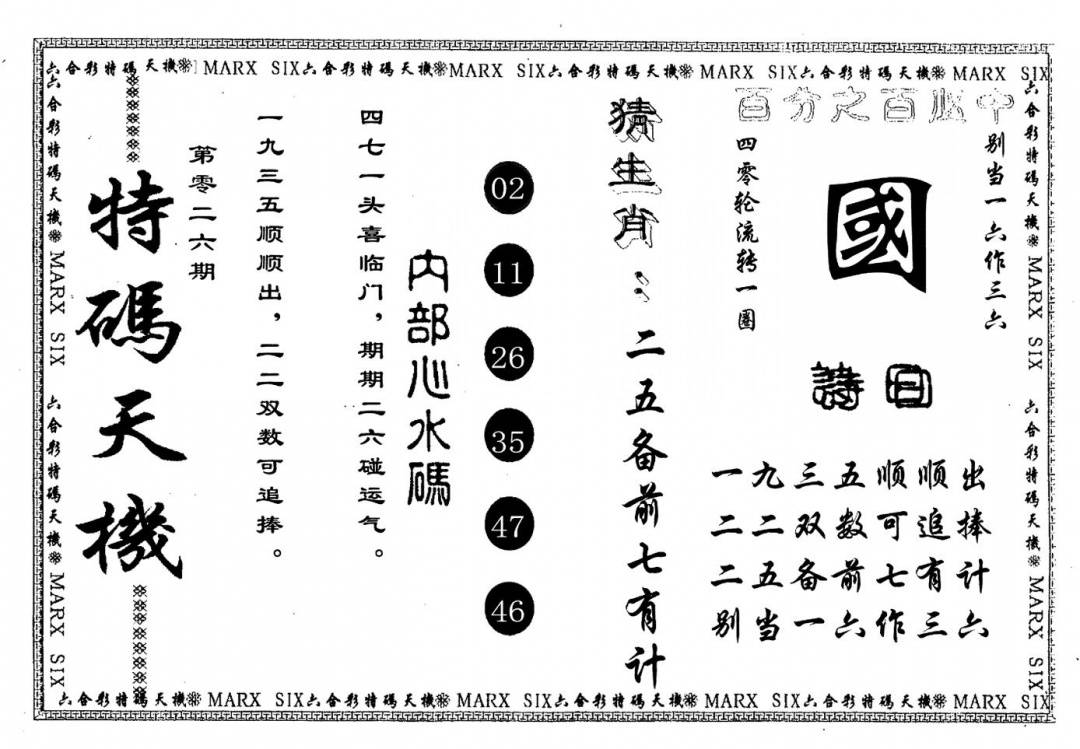 六合彩特碼天機 MARX SIX六合彩特碼天機MARX SIX六合彩特碼天機 MARX SIX六合彩特碼天機 MARX SIX
六合彩特碼天機 MARX SIX 六合彩特碼天機 MARX SIX
特碼天機
第零二六期
一九三五顺顺出，二二双数可追捧。
四七一头喜临门，期期二六碰运气。
内部心水碼
02
11
26
35
47
46
猜生肖：二五备前七有计
百分之百必中
四零轮流转一圈
國
别当一六作三六
詩曰
一九三五顺顺出
二二双数可追捧
二五备前七有计
别当一六作三六
六合彩特碼天機 MARX SIX 六合彩特碼天機 MARX SIX
六合彩特碼天機 MARX SIX六合彩特碼天機 MARX SIX六合彩特碼天機 MARX SIX六合彩特碼天機 MARX SIX